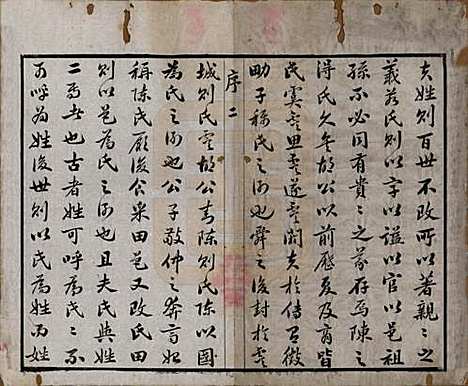 夫姓則百世不改所以著親之之
義若氏則以字以謚以官以邑祖
孫不必同有貴之之義存焉陳之
得氏久矣胡公以前歷夏及商皆
民虞虞思虞遂虞閼夫於傳有徵
勛子稱氏之例也舜之後封於虞
序二
城則氏虞胡公有陳則氏陳以國
為氏之例也公子敬仲之奔齊始
稱陳氏厥後食采田邑又改氏田
則以邑為氏之例也且夫氏與姓
二焉者也古者姓可呼為氏氏不
可呼為姓後世則以氏為姓而姓